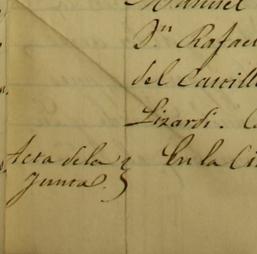 Manuel
Dn Rafael
del Castill
Lizardi.
Acta de la
Junta.
En la Ci